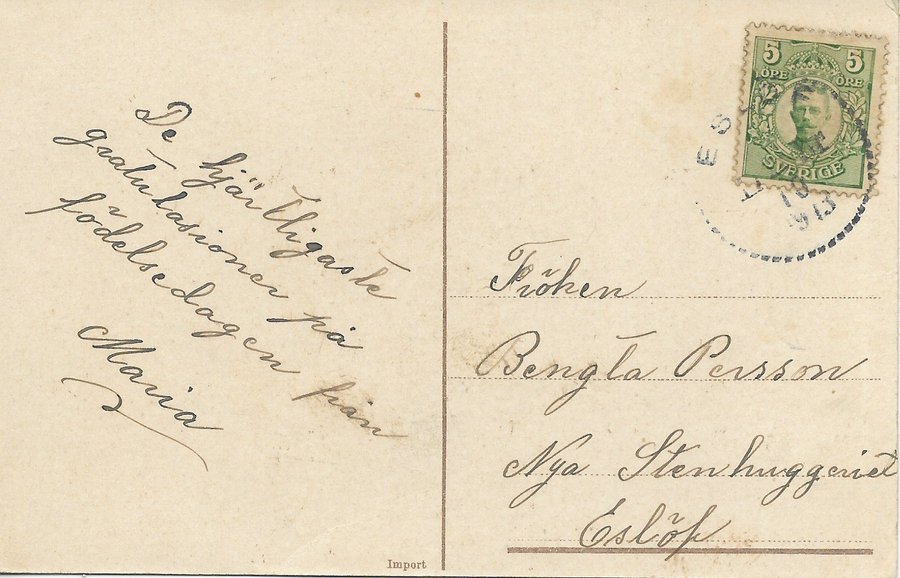 De hjärtligaste
gratulasioner på
födelsedagen från
Maria
5 5
ÖRE ÖRE
SVERIGE
Fröken
Bengta Persson
Nya Stenhuggeriet
Eslöf
Import